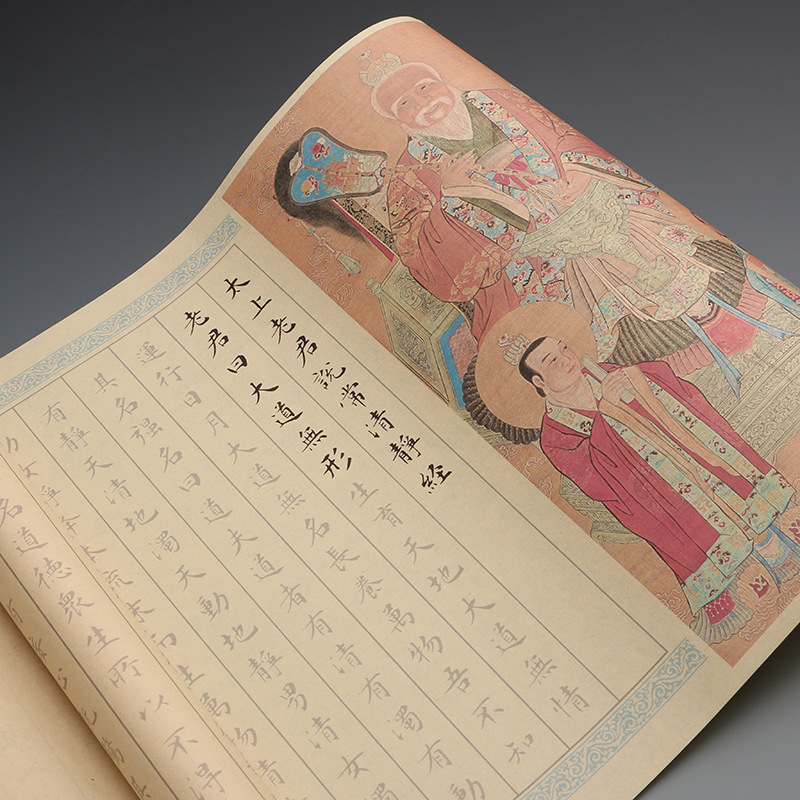 太上老君說常清靜経
老君曰大道無形生育天地大道無情
運行日月大道無名長養萬物吾不知
其名强名曰道夫道者有清有濁有動
有靜天清地濁天動地靜男清女濁
女靜本流末而生萬物清
名道德衆生所以不得